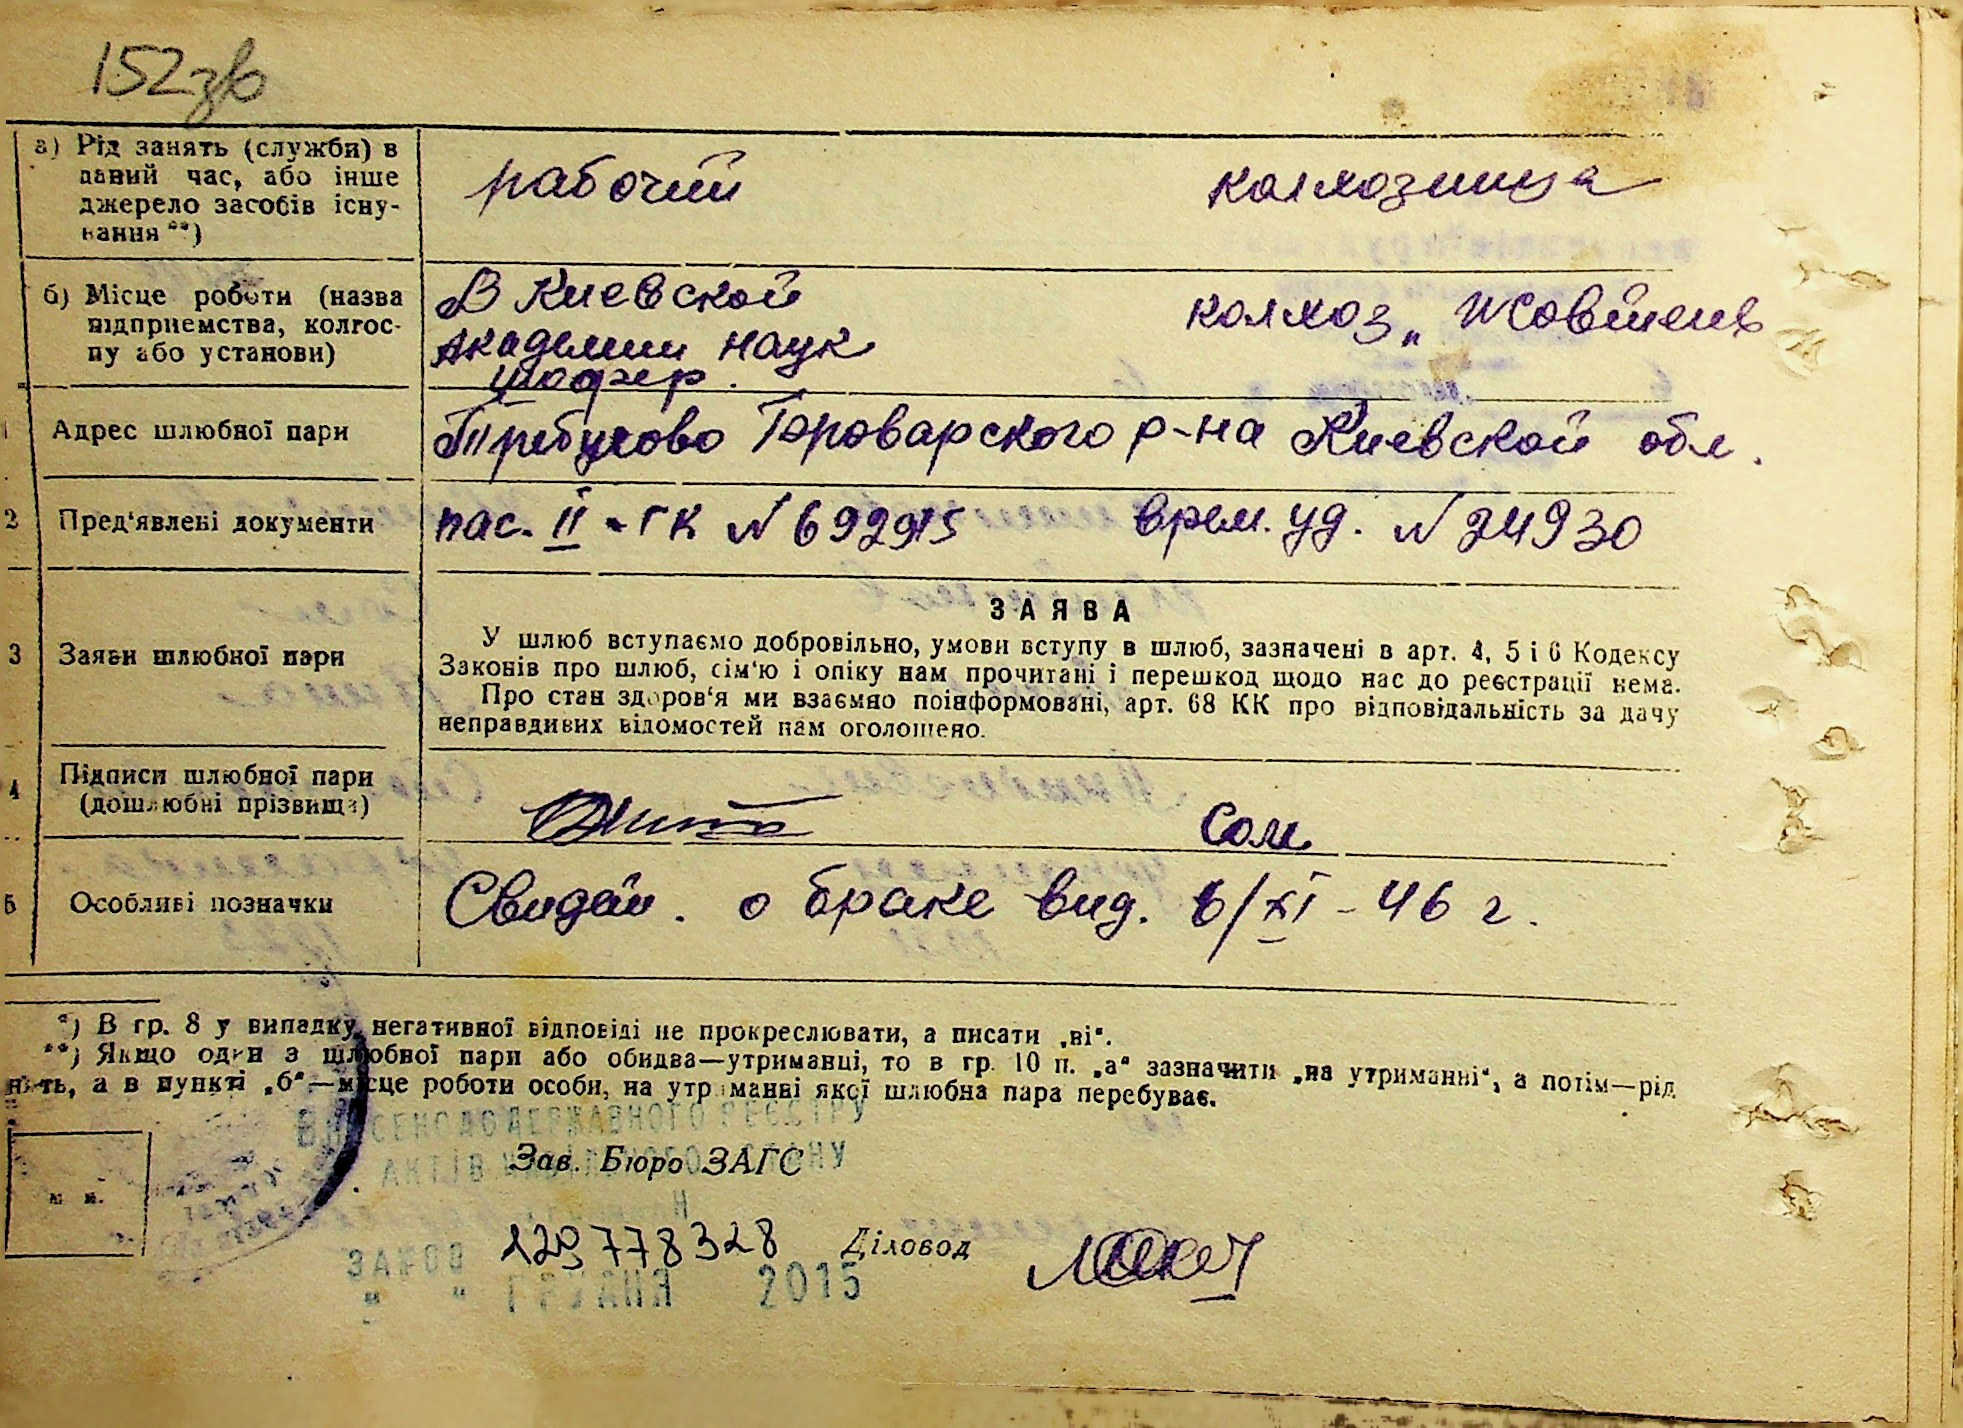 152зв
а) Рід занять (служби) в
даний час, або інше
джерело засобів існу-
вання **)
рабочий
колхозница
б) Місце роботи (назва
підприємства, колгос-
пу або установи)
В Киевской
Академии наук
шофер.
колхоз „Жовтень
1 Адрес шлюбної пари
Требухово Броварского р-на Киевской обл.
2 Пред'явлені документи
пас. II - ГК № 692915
врем. уд. № 24930
3 Заяви шлюбної пари
ЗАЯВА
У шлюб вступаємо добровільно, умови вступу в шлюб, зазначені в арт. 4, 5 і 6 Кодексу
Законів про шлюб, сім'ю і опіку нам прочитані і перешкод щодо нас до реєстрації нема.
Про стан здоров'я ми взаємно поінформовані, арт. 68 КК про відповідальність за дачу
неправдивих відомостей нам оголошено.
4 Підписи шлюбної пари
(дошлюбні прізвища)
Сом
5 Особливі позначки
Свидет. о браке выд. 6/XI - 46 г.
*) В гр. 8 у випадку негативної відповіді не прокреслювати, а писати „ні“.
**) Якщо один з шлюбної пари або обидва—утриманці, то в гр. 10 п. „а“ зазначити „на утриманні“, а потім—рід
нять, а в пункті „б“—місце роботи особи, на утриманні якої шлюбна пара перебуває.
ВНЕСЕНО ДО ДЕРЖАВНОГО РЕЄСТРУ
АКТІВ ЦИВІЛЬНОГО СТАНУ
Зав. Бюро ЗАГС
м. п.
129778328
Діловод
ЗА № 00
" " ГРУДНЯ 2015